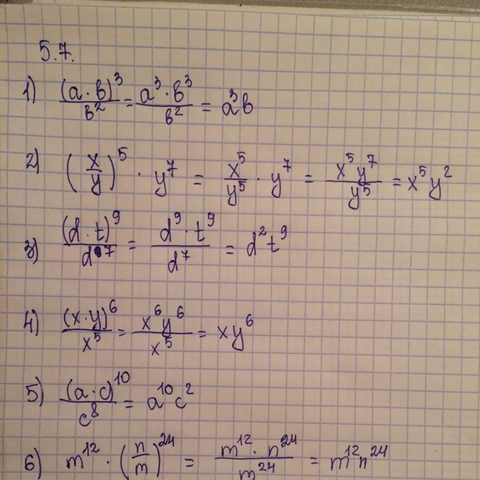 5.7.
1) (a·b)³/b² = a³·b³/b² = a³b
2) (x/y)⁵ · y⁷ = x⁵/y⁵ · y⁷ = x⁵y⁷/y⁵ = x⁵y²
3) (d·t)⁹/d⁷ = d⁹·t⁹/d⁷ = d²t⁹
4) (x·y)⁶/x⁵ = x⁶y⁶/x⁵ = xy⁶
5) (a·c)¹⁰/c⁸ = a¹⁰c²
6) m¹² · (n/m)²⁴ = m¹²·n²⁴/m²⁴ = m¹²n²⁴